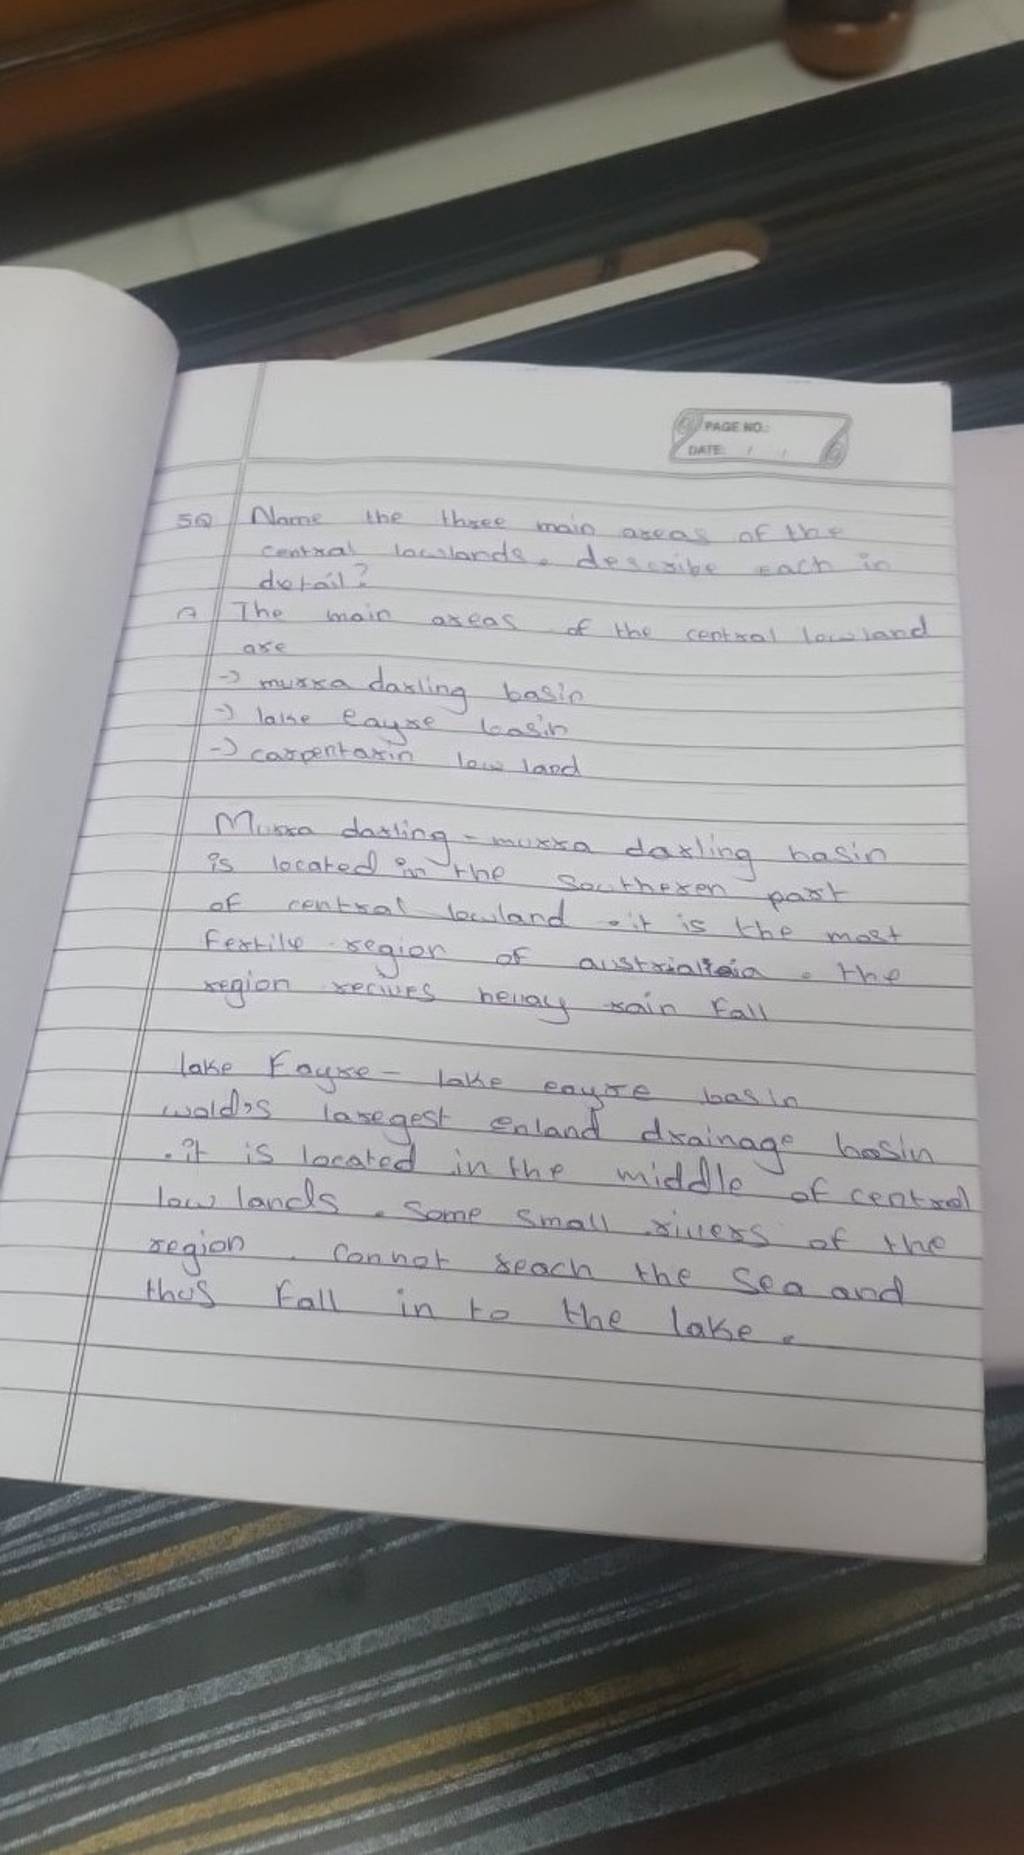 PAGE NO.:
DATE: / /
5Q Name the three main areas of the
central lowlands. describe each in
detail?
A The main areas of the central lowland
are
→ murra darling basin
→ lake eayre basin
→ carpentarin low land
Murra darling - murra darling basin
is located in the southeren part
of central lowland . it is the most
fertile region of
. the
region recives hevay rain fall
lake Eayre - lake eayre basin
wold's laregest enland drainage basin
. it is located in the middle of central
low lands . Some small rivers of the
region . Connot reach the Sea and
thus fall in to the lake .